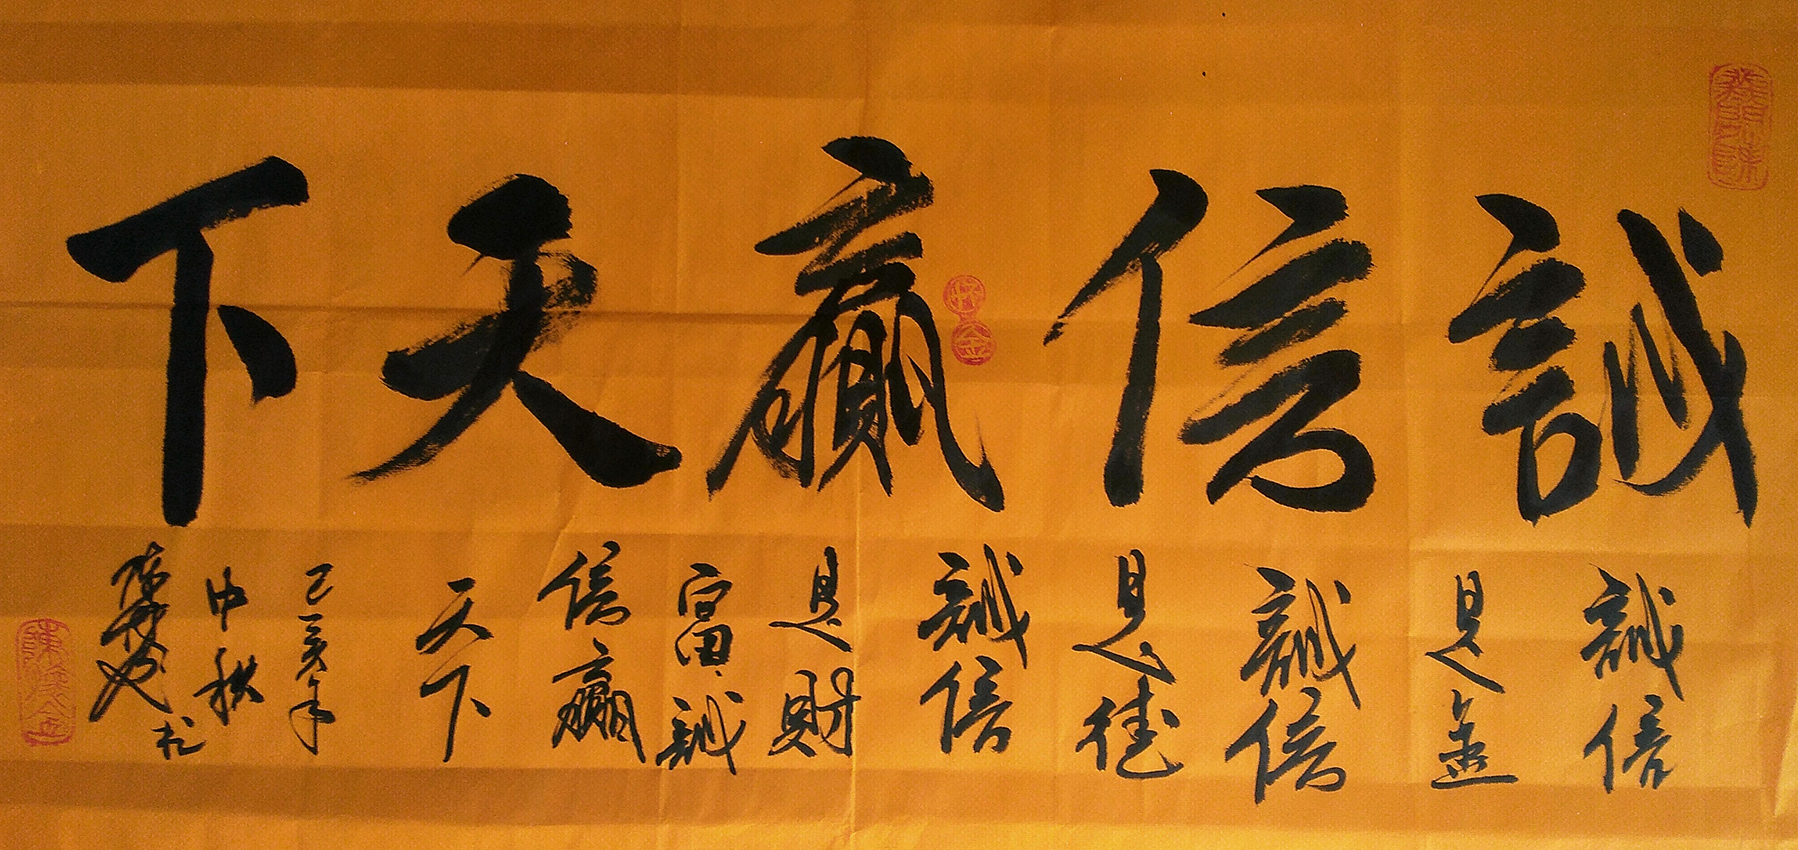 誠信贏天下
誠信
是金
誠信
是德
誠信
是財
富誠
信贏
天下
己亥年
中秋
陳
书